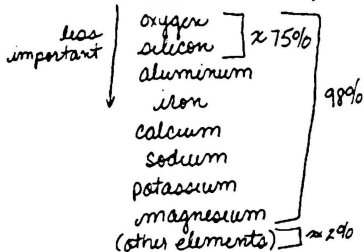 less
important
oxygen
silicon
≈ 75%
aluminum
iron
calcium
sodium
potassium
magnesium
98%
(other elements)
≈ 2%